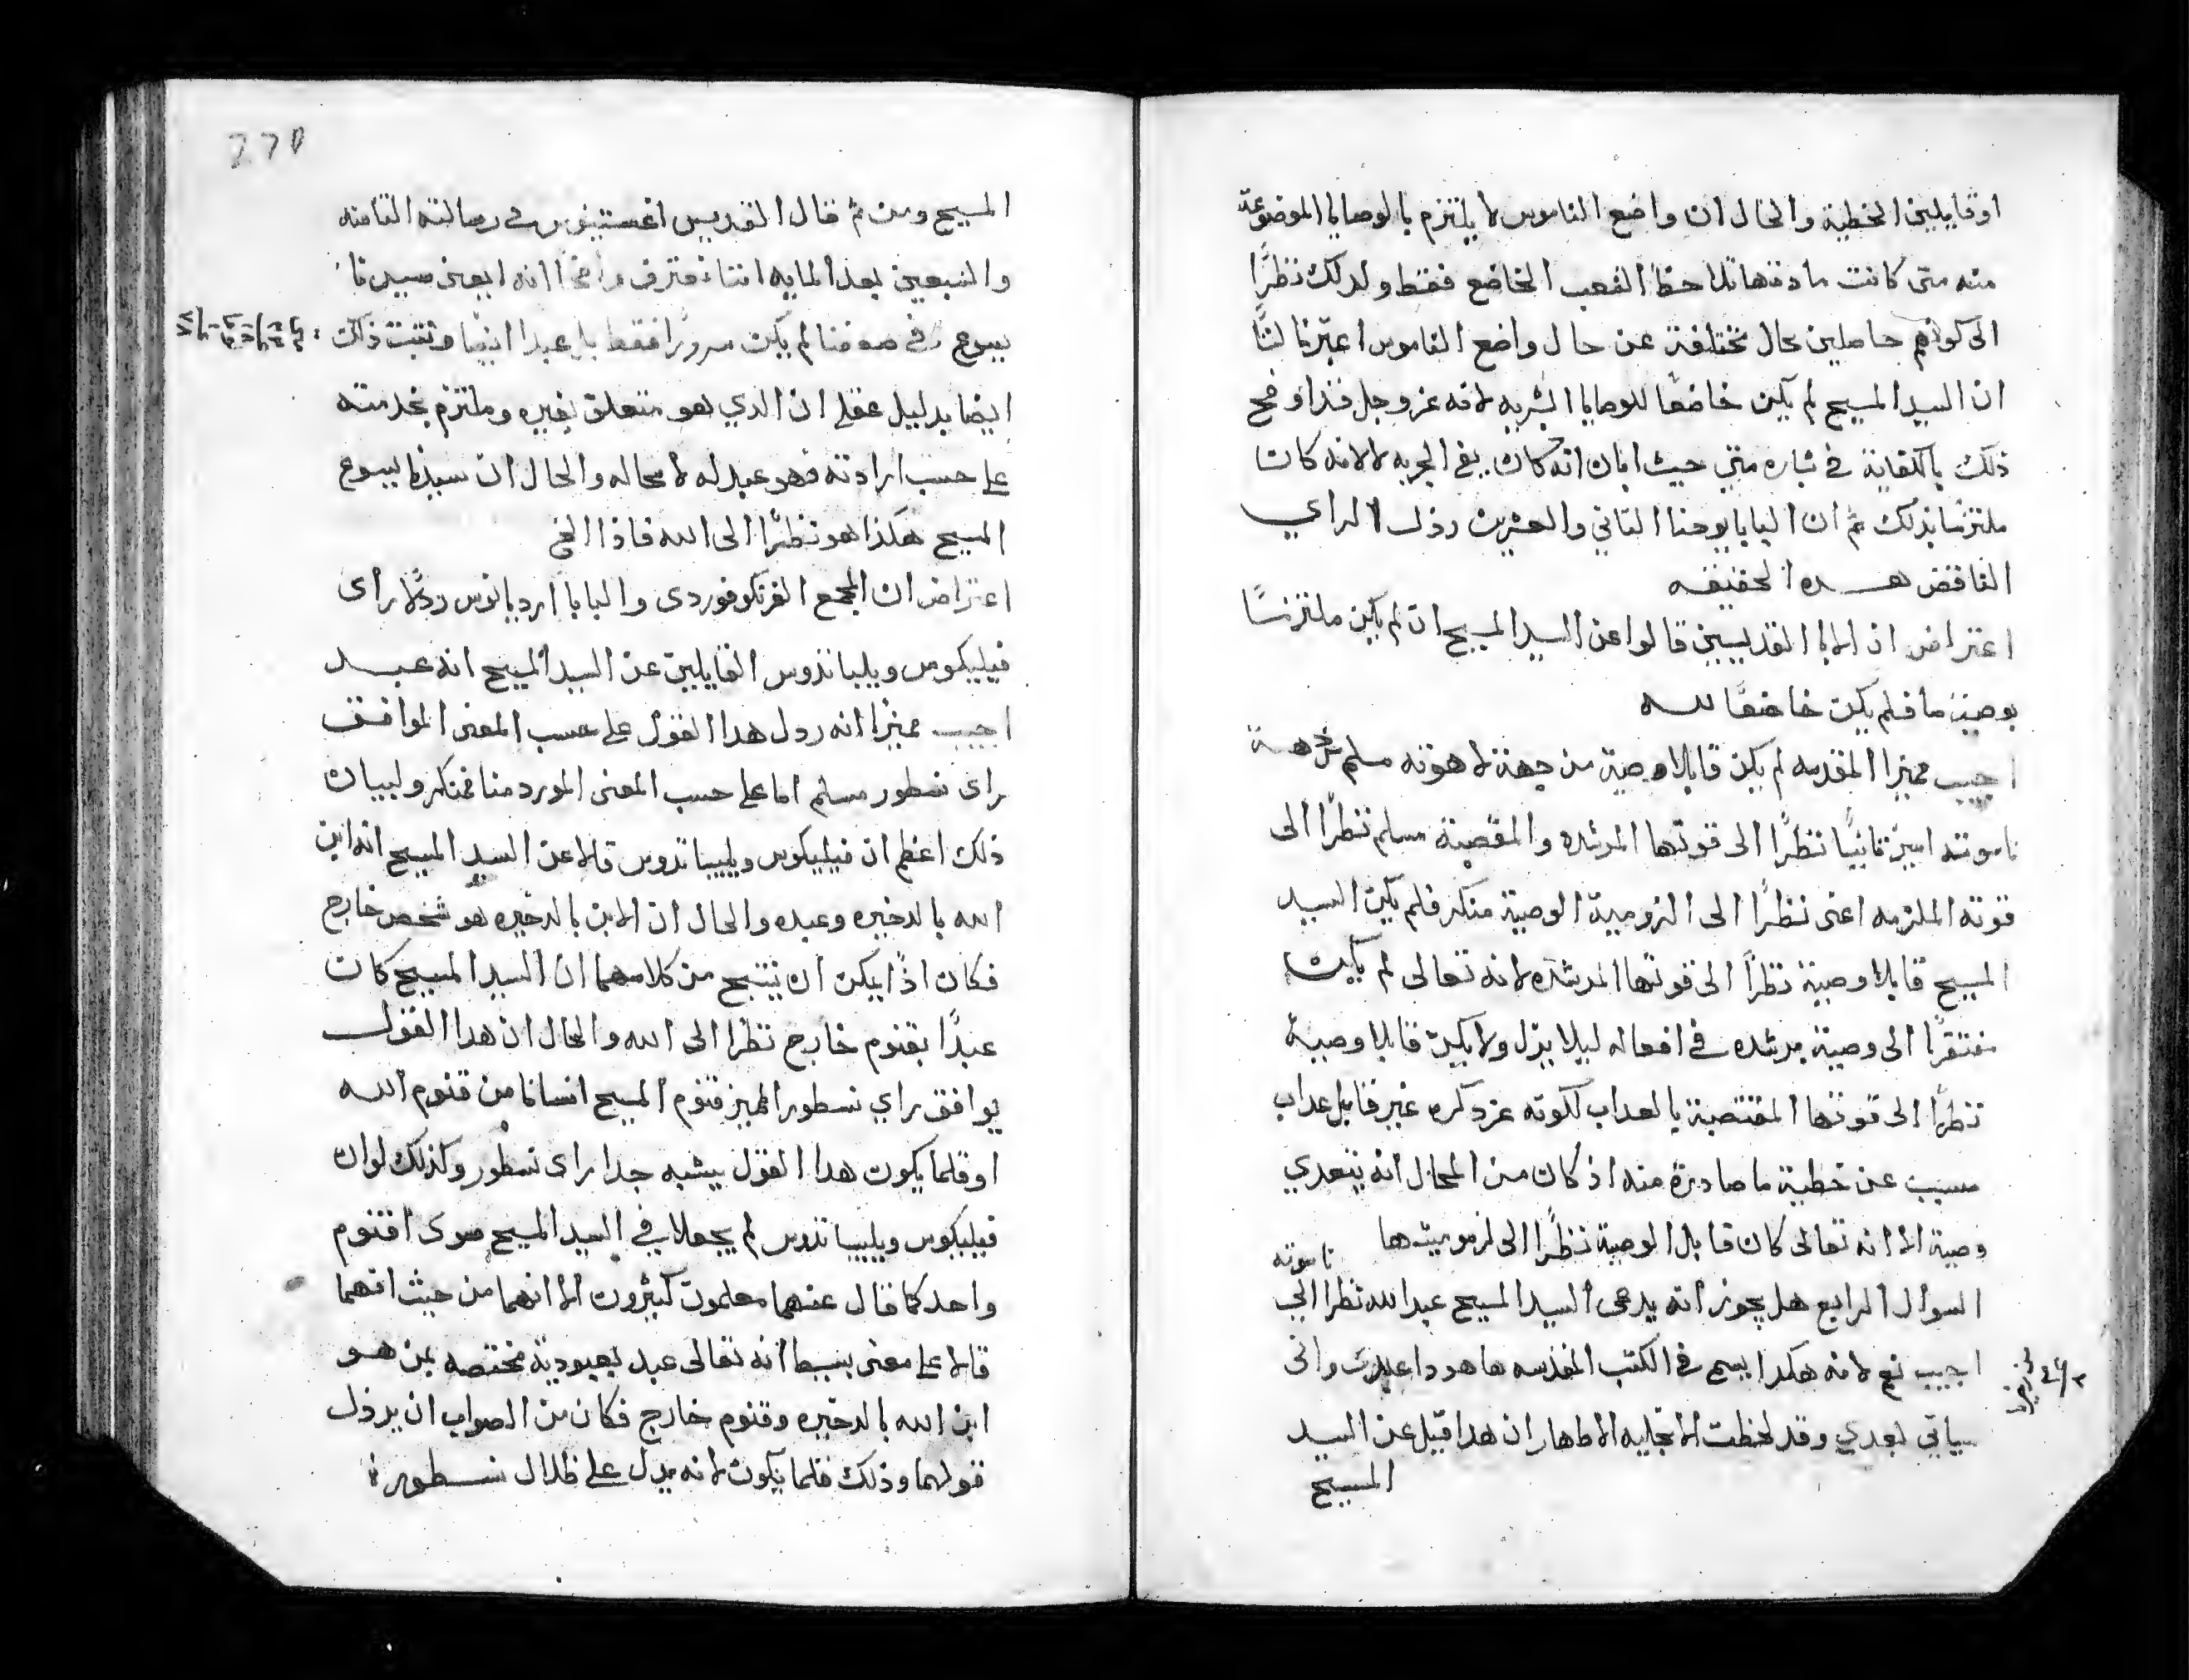 اوقايلين الخطية والحال ان واضع الناموس لا يلتزم بالوصايا الموضوعة
منه متى كانت مادتها تلاحظ الشعب الخاضع فقط ولدلك نظرًا
الى كونهم حاصلين بحال مختلفة عن حال واضع الناموس اعتبرنا
ان السيد المسيح لم يكن خاضعًا للوصايا البشريه لانه عز وجل قد اوضح
ذلك بالكفاية في بشاره متى حيث ابان انه كان يفي الجزيه لا لانه كان
ملتزمًا بذلك ثم ان البابا يوحنا الثاني والعشرين رذل الراي
الناقض هده الحقيقه
اعتراض ان الابا القديسين قالوا عن السيد المسيح ان لم يكن ملتزمًا
بوصية ما فلم يكن خاضعًا لله
اجيب مميزا المقدمه لم يكن قابلا وصية من جهة لاهوته مسلم من جهة
ناسوته اميز ثانيًا نظرًا الى قوتها المرشده والمقصية مسلم نظرًا الى
قوته الملزمه اعنى نظرًا الى الزومية الوصية منكر فلم يكن السيد
المسيح قابلا وصية نظرًا الى قوتها المرشده لانه تعالى لم يكن
مفتقرًا الى وصية ترشده في افعاله ليلا يزل ولا يكون قابلا وصية
نظرًا الى قوتها المقتصية بالعداب لكونه عز دكره غير قابل عداب
مسبب عن خطية ما صادرة منه اذ كان من المحال انه يتعدي
وصية الا انه تعالى كان قابل الوصية نظرًا الى لزوميتها
ناسوته
السوال الرابع هل يجوز انه يدعى السيد المسيح عبد الله نظرا الى
اجيب نعم لانه هكدا يسمى في الكتب المقدسه ها هودا عبدي واني
سياتي بعدي وقد لحظت الانجليه الاطهار ان هدا قيل عن السيد
المسيح
270
المسيح ومن ثم قال القديس اغستينوس في رسالته الثامنه
والسبعين بعد المايه اننا نعترف واضحًا انه ايعنى سيدنا
يسوع في صفنا لم يكن مسرورًا فقط بل عبدا ايضًا وتثبت ذلك
ايضا بدليل عقلي ان الدي هو متعلق بغيره وملتزم بخدمته
على حسب ارادته فهو عبد له لا محاله والحال ان سيدنا يسوع
المسيح هكذا هو نظرًا الى الله فاذا الخ
اعتراض ان المجمع الفرنكوفوردى والبابا ادريانوس رذلا راى
فيليكوس ويليباندوس القايلين عن السيد المسيح انه عبد
اجيب مميزا انه ردل هدا القول على حسب المعنى الموافق
راى نسطور مسلم اما على حسب المعنى المورد منا فمنكر ولبيان
ذلك اعلم ان فيليكوس ويليباندوس قالا عن السيد المسيح انه ابن
الله بالدخيره وعبده والحال ان الابن بالدخيره هو شخص خارج
فكان اذًا يمكن ان ينتج من كلامهما ان السيد المسيح كان
عبدًا بقنوم خارج نظرا الى الله والحال ان هدا القول
يوافق راي نسطور المميز قنوم المسيح انسانا من قنوم الله
او قلما يكون هدا القول يشبه جدا راى نسطور وكذلك لو ان
فيليكوس ويليباندوس لم يجعلا في السيد المسيح سوى اقنوم
واحد كما قال عنهما معلمون كثيرون الا انهما من حيث انهما
قالا على معنى بسيط انه تعالى عبد بعبودية مختصه بمن هو
ابن الله بالدخيره وقنوم خارج فكان من الصواب ان يرذل
قولهما وذلك قلما يكون لانه يدل على ظلال نسطورة